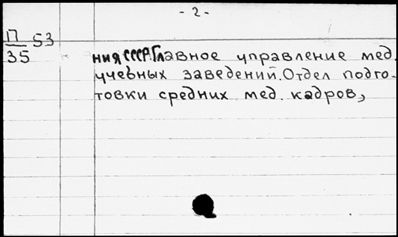 - 2 -
П 53
35
ния СССР. Главное управление мед.
учебных заведений. Отдел подго-
товки средних мед. кадров,